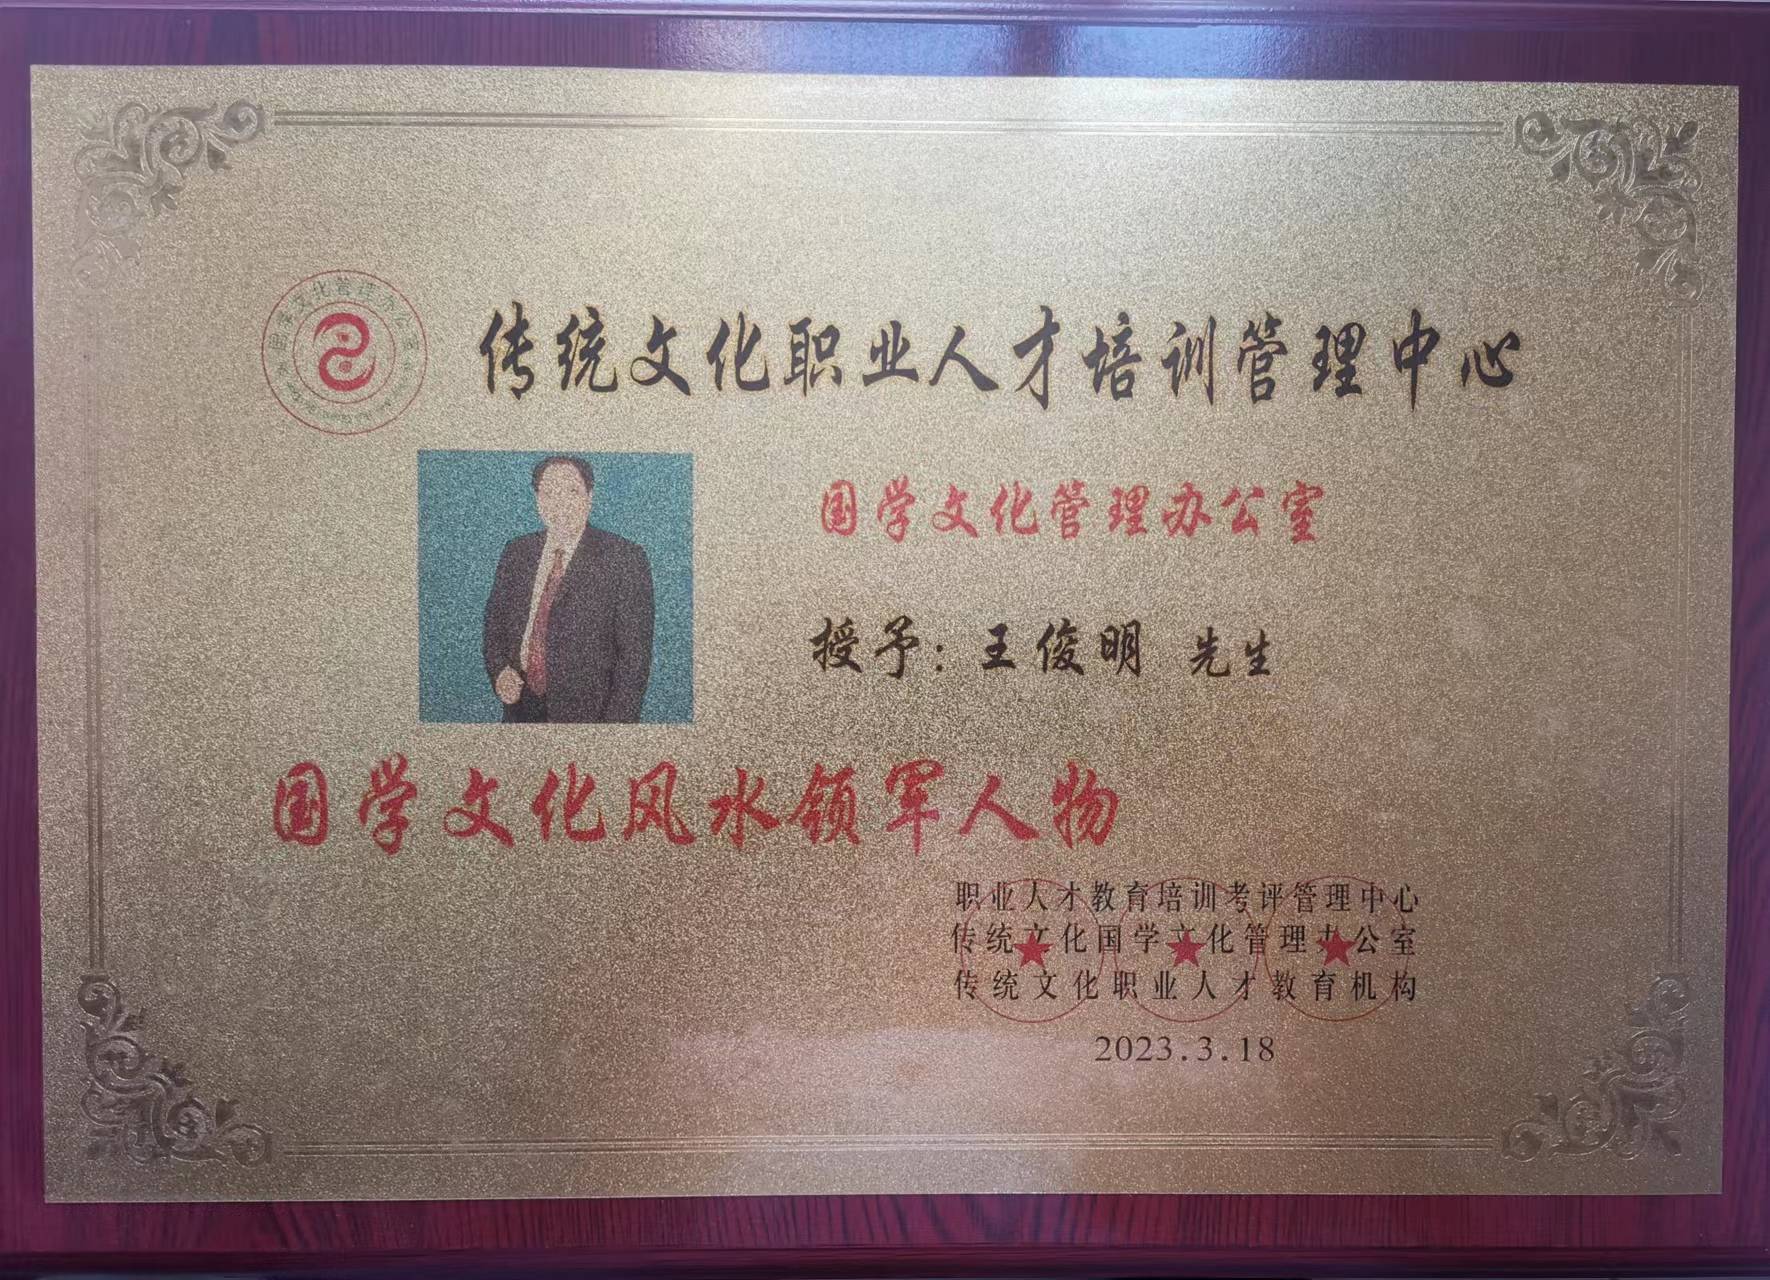 国学文化管理办公室
传统文化职业人才培训管理中心
国学文化管理办公室
授予：王俊明 先生
国学文化风水领军人物
职业人才教育培训考评管理中心
传统文化国学文化管理办公室
传统文化职业人才教育机构
2023.3.18